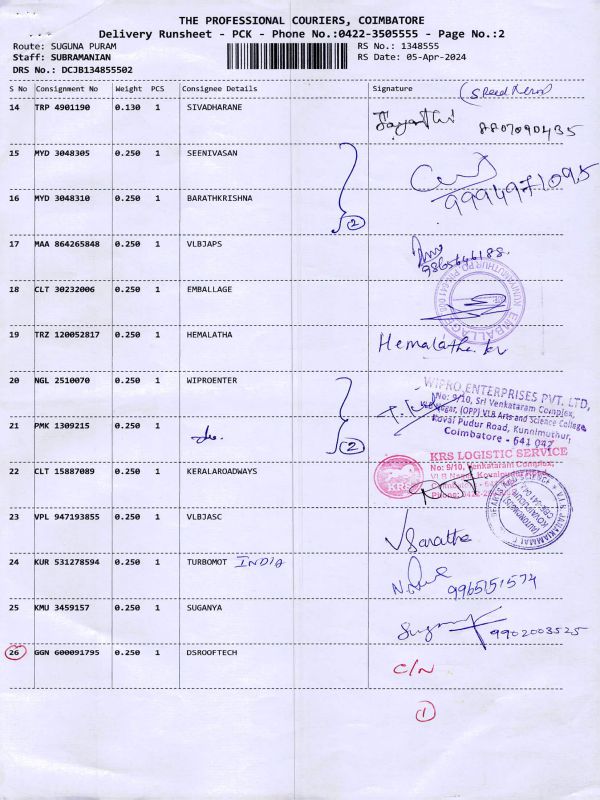 THE PROFESSIONAL COURIERS, COIMBATORE
Delivery Runsheet - PCK - Phone No.:0422-3505555 - Page No.:2
Route: SUGUNA PURAM RS No.: 1348555
Staff: SUBRAMANIAN RS Date: 05-Apr-2024
DRS No.: DCJB134855502
S No Consignment No Weight PCS Consignee Details Signature
14 TRP 4901190 0.130 1 SIVADHARANE
8807090435
15 MYD 3048305 0.250 1 SEENIVASAN
16 MYD 3048310 0.250 1 BARATHKRISHNA
2
17 MAA 864265848 0.250 1 VLBJAPS
9865646188.
18 CLT 30232006 0.250 1 EMBALLAGE
EMBALLAGE
19 TRZ 120052817 0.250 1 HEMALATHA Hemalatha. kv
20 NGL 2510070 0.250 1 WIPROENTER
WIPRO ENTERPRISES PVT. LTD,
No: 9/10, Sri Venkataram Complex,
Nagar, (OPP) VLB Arts and Science College,
Kovai Pudur Road, Kunnimuthur,
Coimbatore - 641 042
21 PMK 1309215 0.250 1 do.
2
22 CLT 15887089 0.250 1 KERALAROADWAYS
KRS LOGISTIC SERVICE
KRS
No: 9/10, Venkataram Complex,
23 VPL 947193855 0.250 1 VLBJASC
24 KUR 531278594 0.250 1 TURBOMOT INDIA
9965151574
25 KMU 3459157 0.250 1 SUGANYA
9902003525
26 GGN 600091795 0.250 1 DSROOFTECH C/N
1